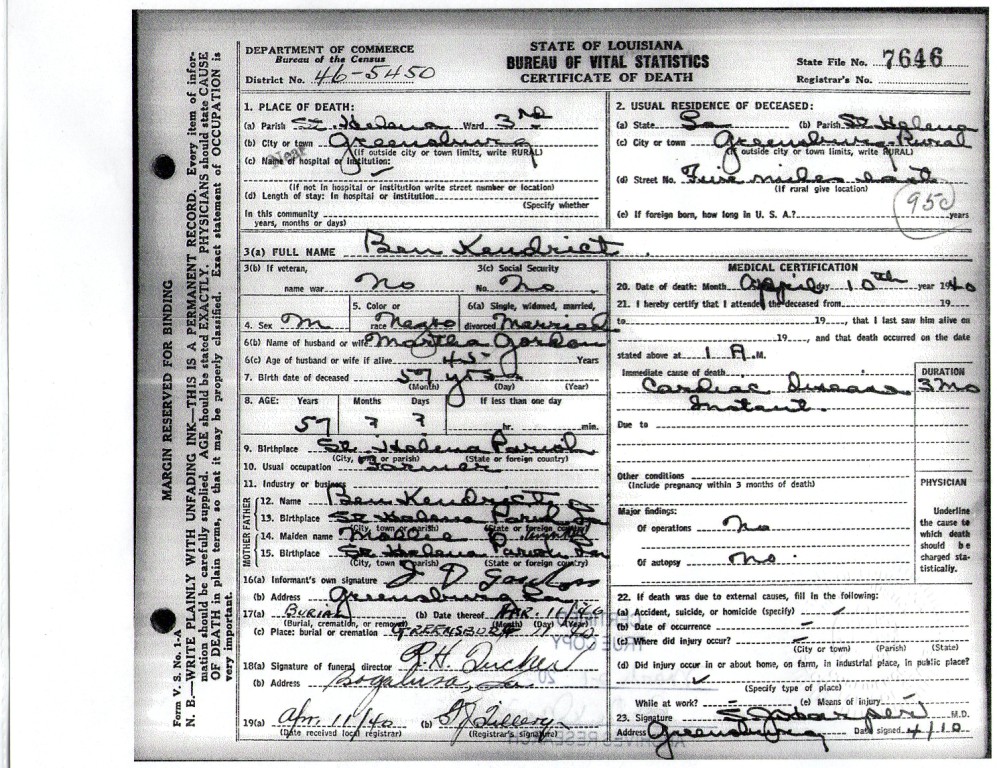 DEPARTMENT OF COMMERCE
Bureau of the Census
District No. 46-5450
STATE OF LOUISIANA
BUREAU OF VITAL STATISTICS
CERTIFICATE OF DEATH
State File No. 7646
Registrar's No.
1. PLACE OF DEATH:
(a) Parish St. Helena Ward 3rd
(b) City or town Greensburg
Near
(If outside city or town limits, write RURAL)
(c) Name of hospital or institution:
(If not in hospital or institution write street number or location)
(d) Length of stay: In hospital or institution
(Specify whether
In this community
years, months or days)
2. USUAL RESIDENCE OF DECEASED:
(a) State La (b) Parish St Helena
(c) City or town Greensburg-Rural
outside city or town limits, write RURAL)
(d) Street No. Five miles east
(If rural give location)
950
(e) If foreign born, how long in U. S. A.? years
3(a) FULL NAME Ben Kendrict
3(b) If veteran,
name war No
3(c) Social Security
No. No.
4. Sex M
5. Color or
race Negro
6(a) Single, widowed, married,
divorced Married
6(b) Name of husband or wife Martha Gordon
6(c) Age of husband or wife if alive 45 Years
7. Birth date of deceased 57 yrs
(Month) (Day) (Year)
8. AGE: Years Months Days If less than one day
57 ? ? hr. min.
9. Birthplace St. Helena Parish
(City, town or parish) (State or foreign country)
10. Usual occupation Farmer
11. Industry or business
FATHER
12. Name Ben Kendrict
13. Birthplace St Helena Parish La
(City, town or parish) (State or foreign country)
MOTHER
14. Maiden name Mollie
15. Birthplace St Helena Parish La
(City, town or parish) (State or foreign country)
16(a) Informant's own signature J D
(b) Address Greensburg La
17(a) BURIAL (b) Date thereof APR. 11/40
(Burial, cremation, or removal) (Month) (Day) (Year)
(c) Place: burial or cremation GREENSBURG 11 40
18(a) Signature of funeral director R.H. Tucker
(b) Address Bogalusa, La.
19(a) Apr. 11/40 (b) G J Tillery
(Date received local registrar) (Registrar's signature)
MEDICAL CERTIFICATION
20. Date of death: Month April day 10th year 1940
21. I hereby certify that I attended the deceased from 19
to 19, that I last saw him alive on
19, and that death occurred on the date
stated above at 1 A.M.
Immediate cause of death DURATION
Cardiac Disease 3 Mo
Instant.
Due to
Other conditions
(Include pregnancy within 3 months of death)
Major findings:
Of operations No
Of autopsy No.
PHYSICIAN
Underline
the cause to
which death
should be
charged sta-
tistically.
22. If death was due to external causes, fill in the following:
(a) Accident, suicide, or homicide (specify)
(b) Date of occurrence
(c) Where did injury occur?
(City or town) (Parish) (State)
(d) Did injury occur in or about home, on farm, in industrial place, in public place?
(Specify type of place)
While at work? (e) Means of injury
23. Signature M.D.
Address Greensburg Date signed 4/10
MARGIN RESERVED FOR BINDING
N. B.—WRITE PLAINLY WITH UNFADING INK—THIS IS A PERMANENT RECORD. Every item of infor-
mation should be carefully supplied. AGE should be stated EXACTLY. PHYSICIANS should state CAUSE
OF DEATH in plain terms, so that it may be properly classified. Exact statement of OCCUPATION is
very important.
Form V. S. No. 1-A
TRUE COPY
ARCHIVES RESEARCH